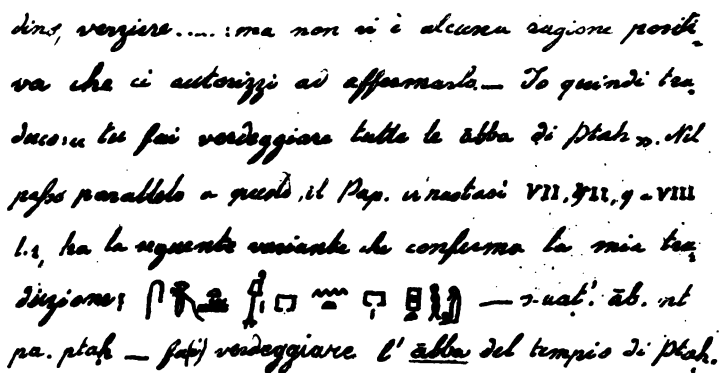 dino, verziere.....: ma non vi è alcuna ragione positi-
va che ci autorizzi ad affermarlo. — Io quindi tra-
duco: « tu fai verdeggiare tutte le ābba di Ptah ». Nel
passo parallelo a questo, il Pap. Anastasi VII, 9 - VIII
l. 1, ha la seguente variante che conferma la mia tra-
duzione: — s-uat'. āb. nt
pa. ptaḥ — fa(i) verdeggiare l' ābba del tempio di Ptah.